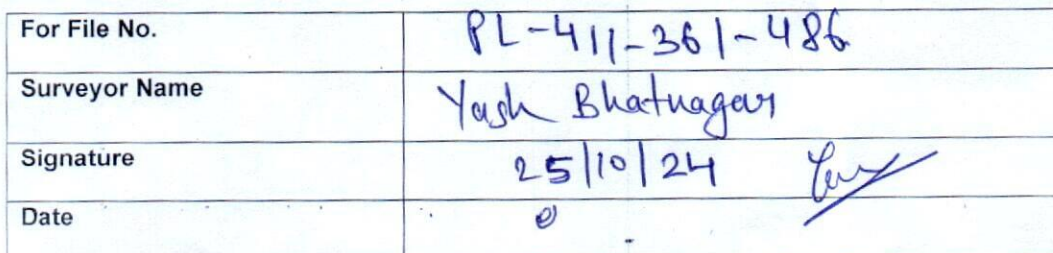 For File No. PL-411-361-486
Surveyor Name Yash Bhatnagar
Signature 25/10/24
Date